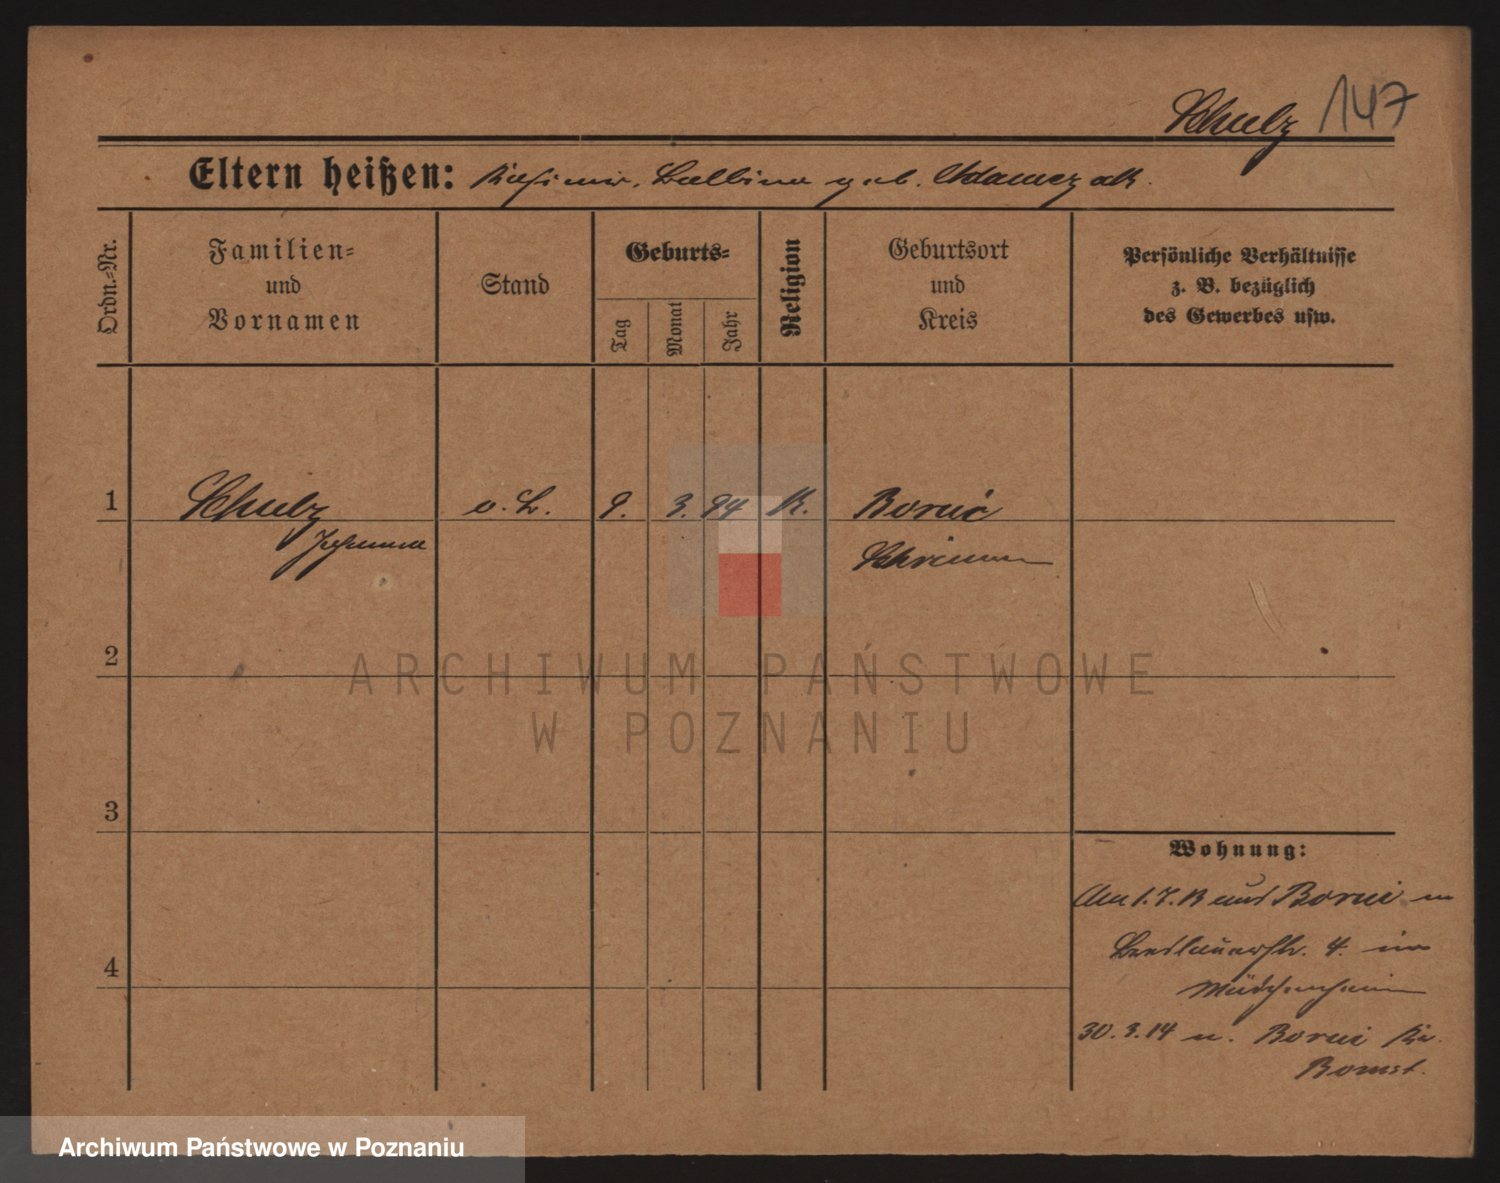 Schulz 147
Eltern heißen: Kasimir, Balbina geb. Adamczak.
Ordn.-Nr.
Familien-
und
Vornamen
Stand
Geburts-
Tag
Monat
Jahr
Religion
Geburtsort
und
Kreis
Persönliche Verhältnisse
z. B. bezüglich
des Gewerbes usw.
1 Schulz o. B. 9. 3. 94 K. Borui
Johanna Schrimm
2
3
4
Wohnung:
Am 1.7.13 Borui
4. im
Mädchenheim
30.3.14 n. Borui Kr.
Bomst.
ARCHIWUM PAŃSTWOWE
W POZNANIU
Archiwum Państwowe w Poznaniu